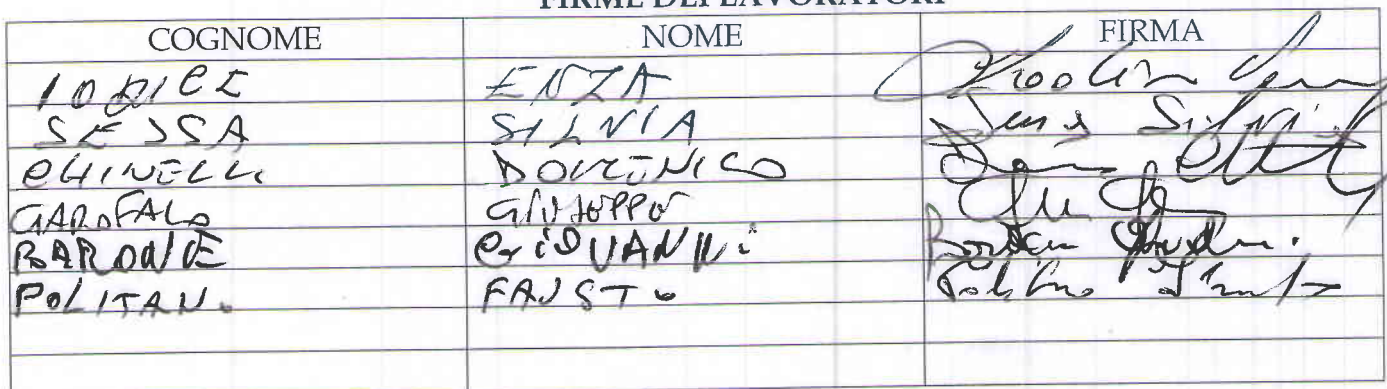 FIRME DEI LAVORATORI
COGNOME NOME FIRMA
IODICE ENZA
SESSA SILVIA Silvia
CHINELLI DOMENICO
GAROFALO GIUSEPPE
BARONE GiOVANNi
POLITANO FAUSTO Politano Fausto